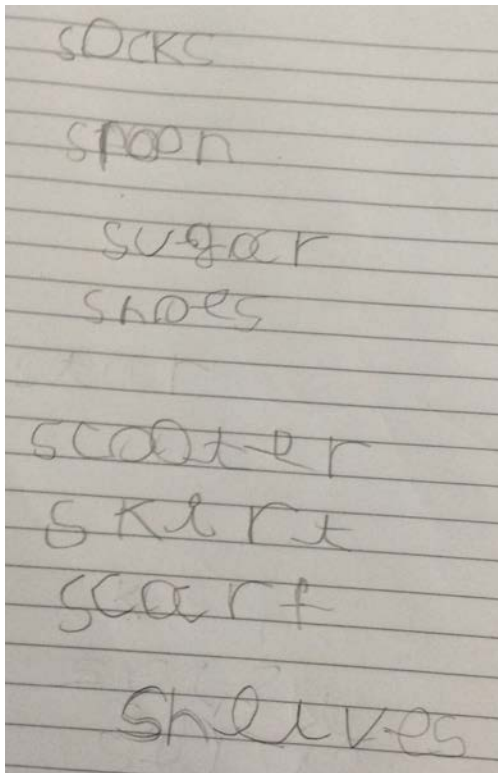 socks
spoon
sugar
shoes
scooter
skirt
scarf
shelves